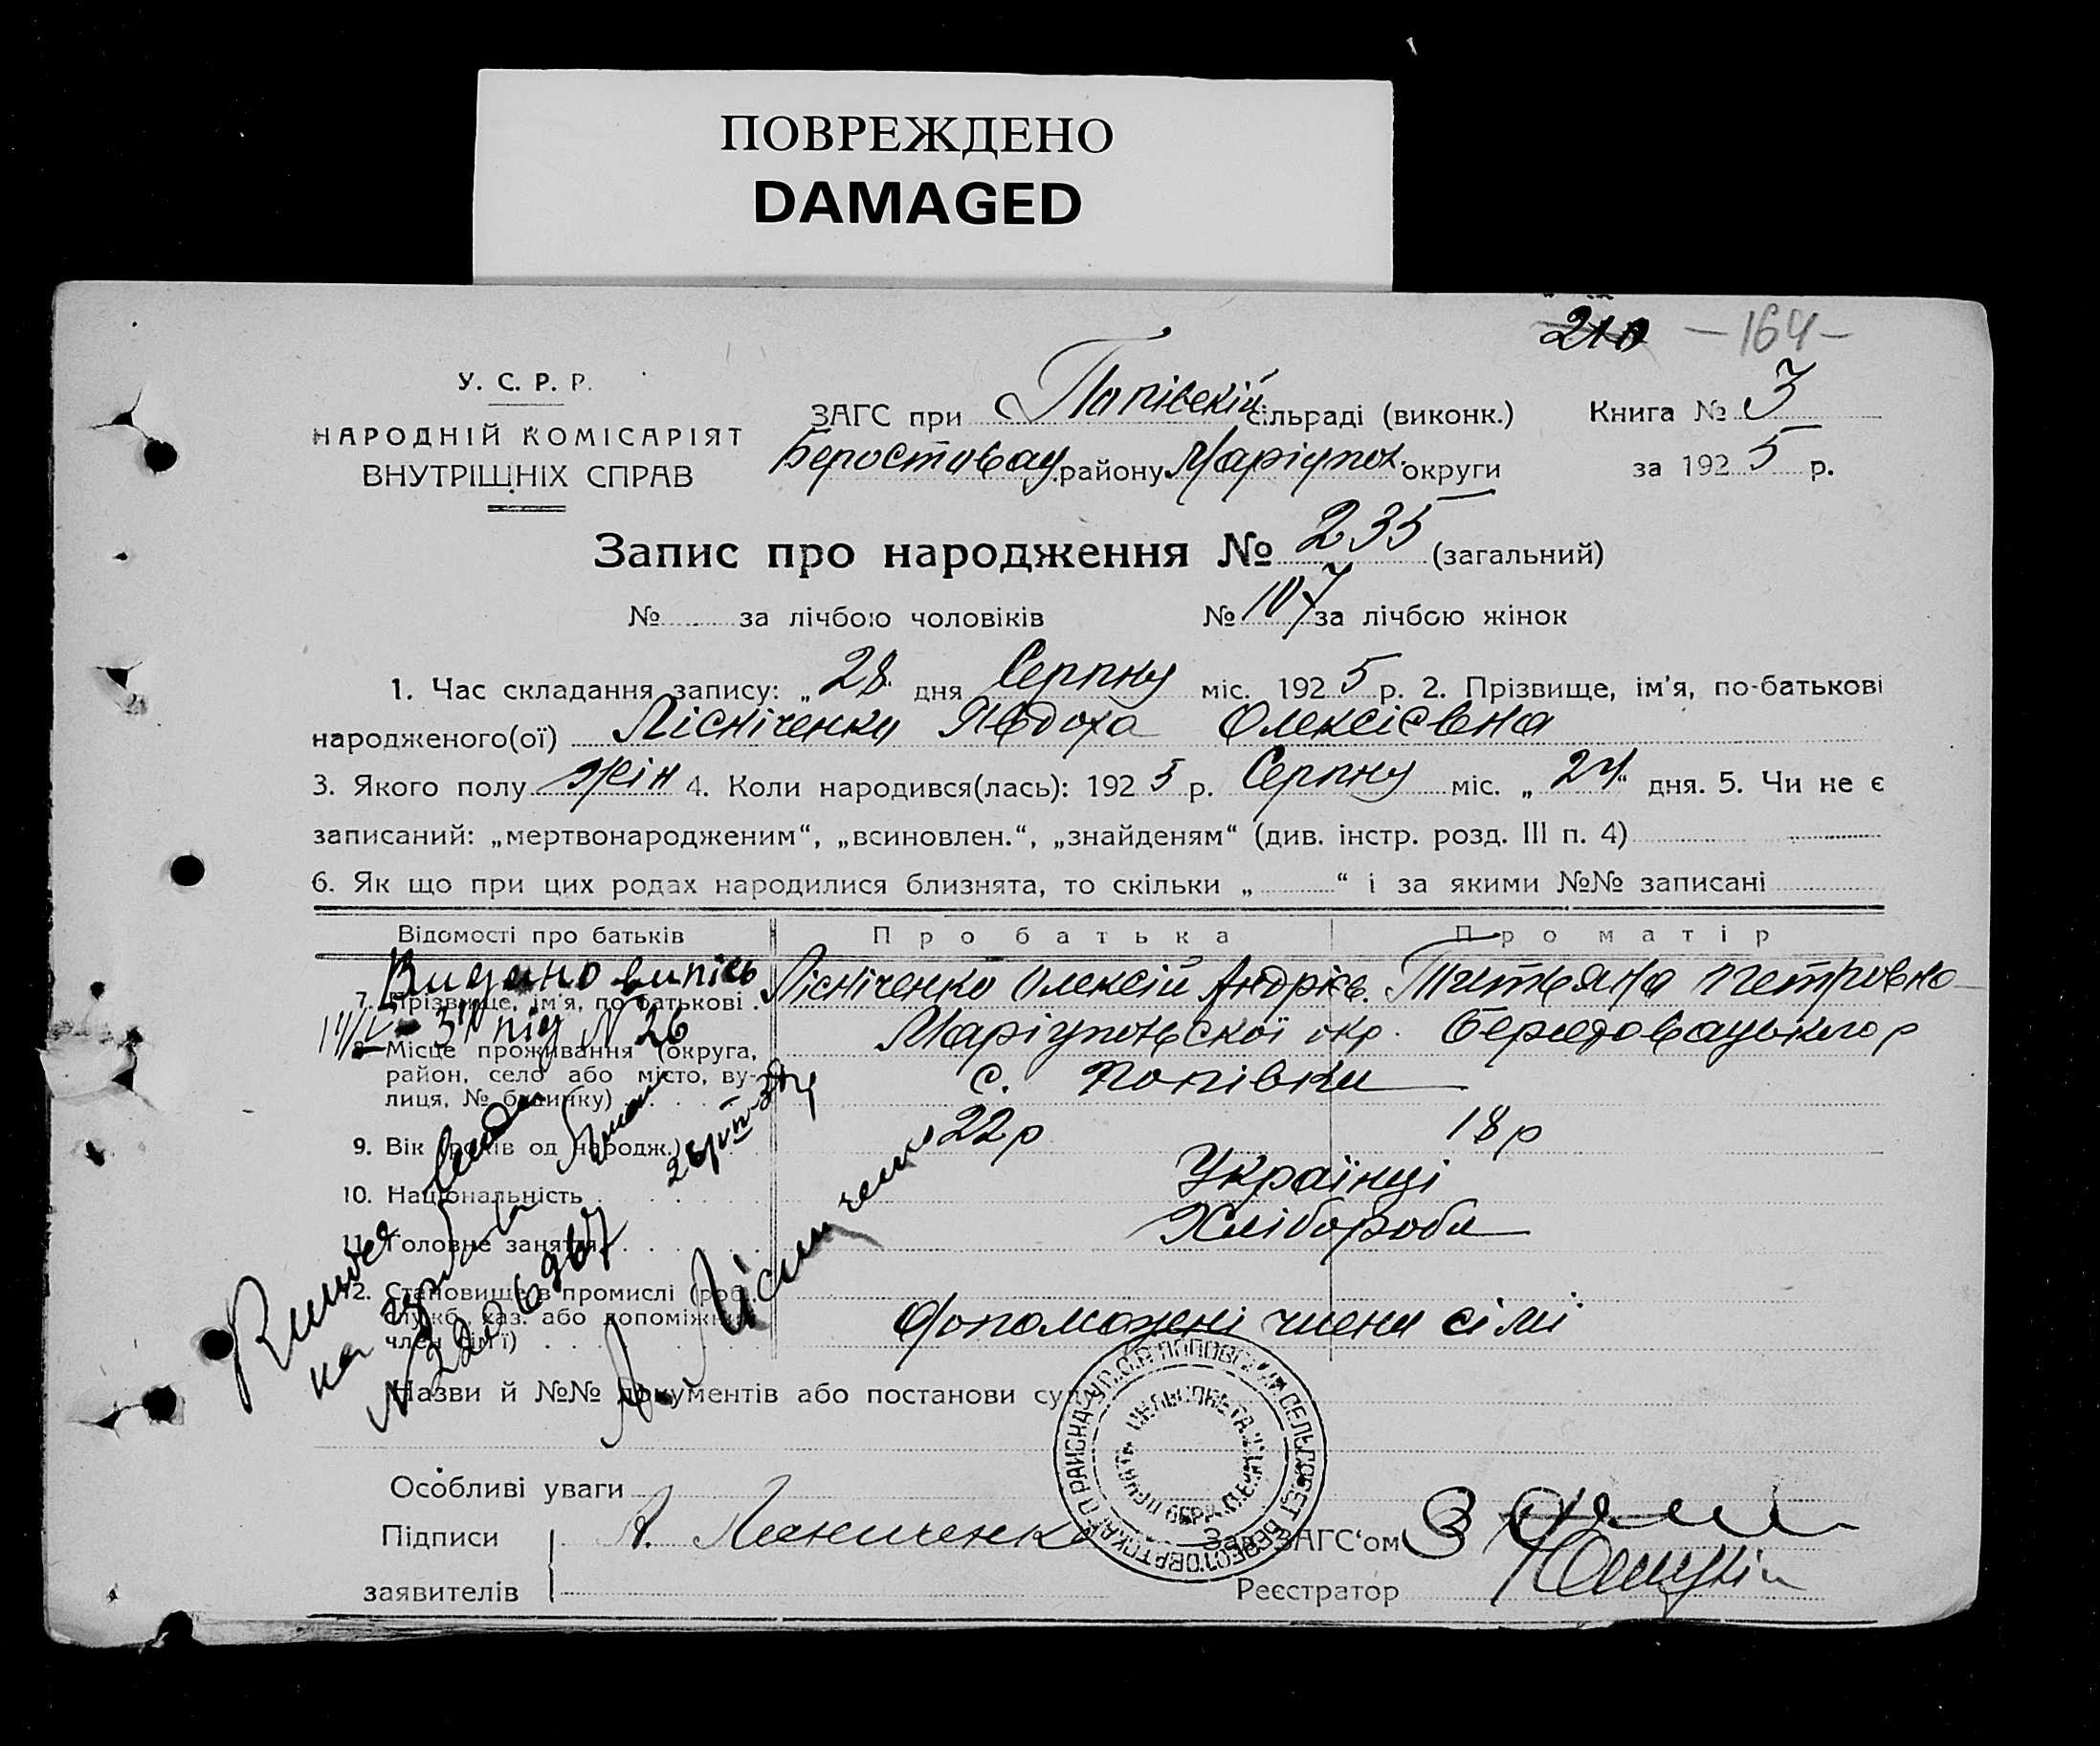 ПОВРЕЖДЕНО
DAMAGED
210 — 164 —
У. С. Р. Р.
НАРОДНІЙ КОМІСАРІЯТ
ВНУТРІШНІХ СПРАВ
ЗАГС при Попівскій сільраді (виконк.)
Книга № 3
району Маріупол. округи
за 1925 р.
Запис про народження № 235 (загальний)
№ за лічбою чоловіків № 107 за лічбою жінок
1. Час складання запису: „28 дня Серпну міс. 1925 р. 2. Прізвище, ім'я, по-батькові
народженого(ої) Лісніченки Явдоха Олексієвна
3. Якого полу жін 4. Коли народився(лась): 1925 р. Серпну міс. „24“ дня. 5. Чи не є
записаний: „мертвонародженим“, „всиновлен.“, „знайденям“ (див. інстр. розд. III п. 4)
6. Як що при цих родах народилися близнята, то скільки „ “ і за якими №№ записані
Відомості про батьків Про батька Про матір
Видано випісь
7. Прізвище, ім'я, по батькові Лісніченко Олексій Андрієв. Титьяна Петровна
під N 26
8. Місце проживання (округа, Маріупольскої окр.
район, село або місто, ву- с. Попівки
лиця, № будинку)
9. Вік (років од народж.) 22 р 18 р
10. Національність Українці
11. Головне заняття Хлібороби
12. Становище в промислі (роб.,
служб., хаз. або допоміжн.
член сім'ї) допоможені члени сімі
Назви й №№ документів або постанови суду
Особливі уваги
Підписи
заявителів
Зав. ЗАГС‘ом
Реєстратор